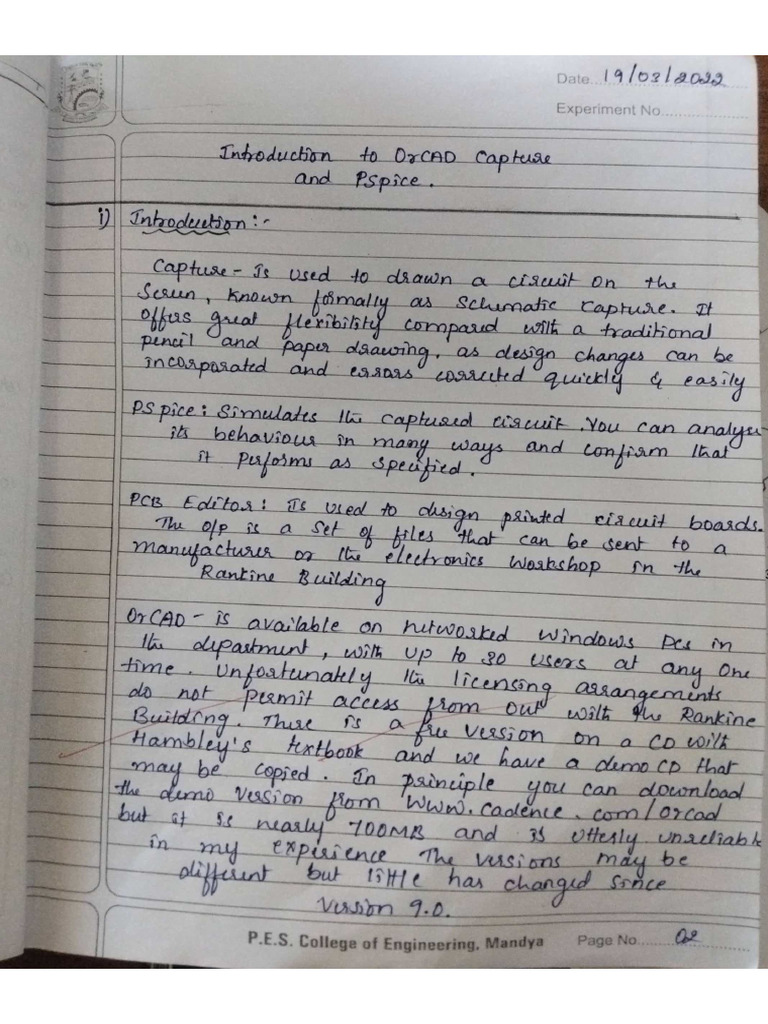 Date...19/03/2022
Experiment No................
Introduction to OrCAD Capture
and PSpice.
i) Introduction:-
Capture - Is used to drawn a circuit on the
Screen, known formally as Schematic Capture. It
offers great flexibility compared with a traditional
pencil and paper drawing, as design changes can be
incorporated and errors corrected quickly & easily
PSpice: Simulates the captured circuit. You can analyse
its behaviour in many ways and confirm that
it performs as specified.
PCB Editor: Is used to design printed circuit boards.
The o/p is a set of files that can be sent to a
manufacturer or the electronics workshop in the
Rankine Building
OrCAD - is available on networked windows PCs in
the department, with up to 30 users at any one
time. Unfortunately the licensing arrangements
do not permit access from out with the Rankine
Building. There is a free version on a CD with
Hambley's textbook and we have a demo CD that
may be copied. In principle you can download
the demo version from www.cadence.com/orcad
but it is nearly 700MB and is utterly unreliable
in my experience The versions may be
different but little has changed since
version 9.0.
P.E.S. College of Engineering, Mandya Page No.......02